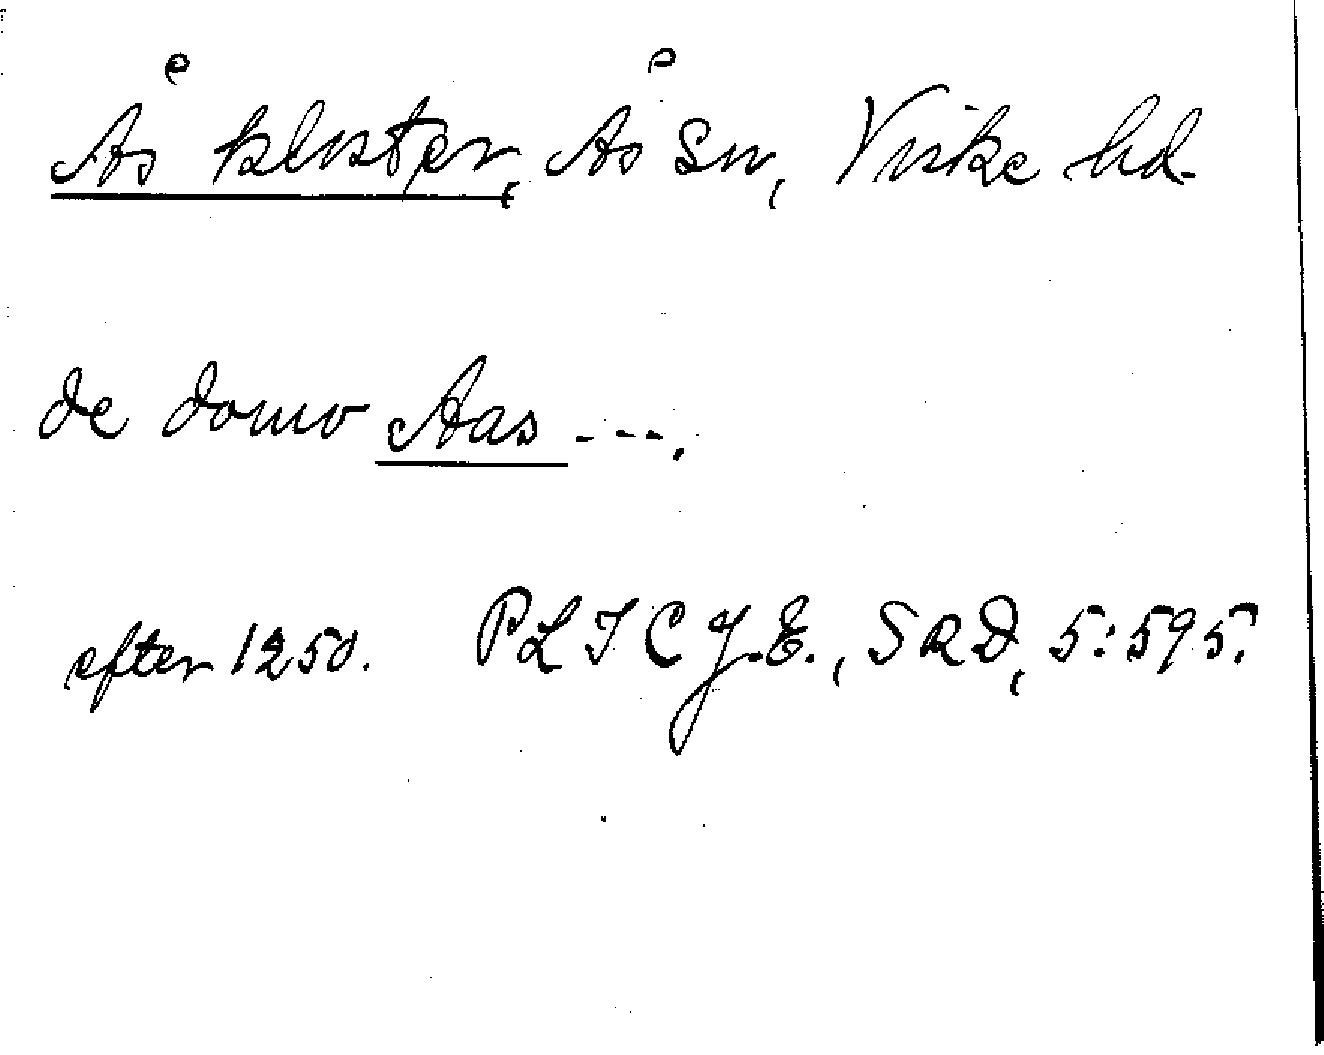 Ås kloster, Ås sn, Viske hd.
de domo Aas ---.
efter 1250. PLTCJ.E., SRD, 5:595.